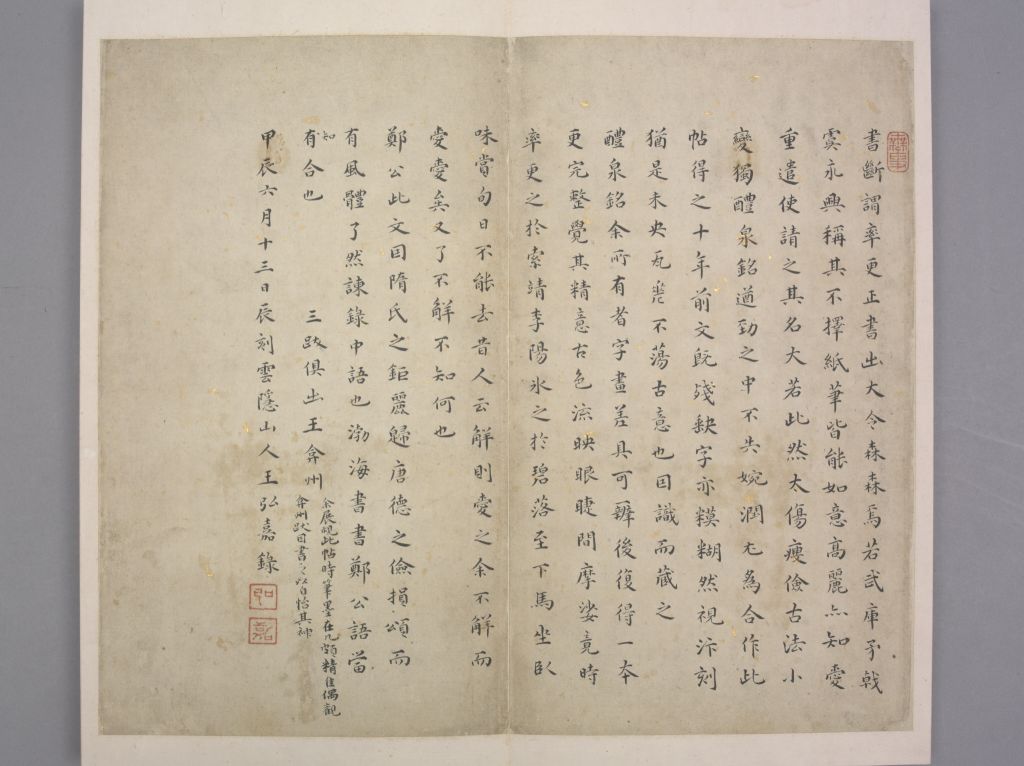 書斷謂率更正書出大令森森焉若武庫矛戟
虞永興稱其不擇紙筆皆能如意高麗亦知愛
重遣使請之其名大若此然太傷瘦儉古法小
變獨醴泉銘遒勁之中不失婉潤尤為合作此
帖得之十年前文既殘缺字亦糢糊然視汴刻
猶是未央瓦甍不蕩古意也因識而藏之
醴泉銘余所有者字畫差具可辨後復得一本
更完整覺其精意古色流映眼睫間摩娑竟時
率更之於索靖李陽氷之於碧落至下馬坐臥
味賞旬日不能去昔人云解則愛之余不解而
愛愛矣又了不解不知何也
鄭公此文因隋氏之鉅麗歸唐德之儉損頌而
有風體了然諫錄中語也渤海書書鄭公語當
知
有合也
三跋俱出王弇州
余展硯此帖時筆墨在几頗精佳偶觀
弇州跋因書之以自怡其神
甲辰六月十三日辰刻雲隱山人王弘嘉錄
弘
嘉